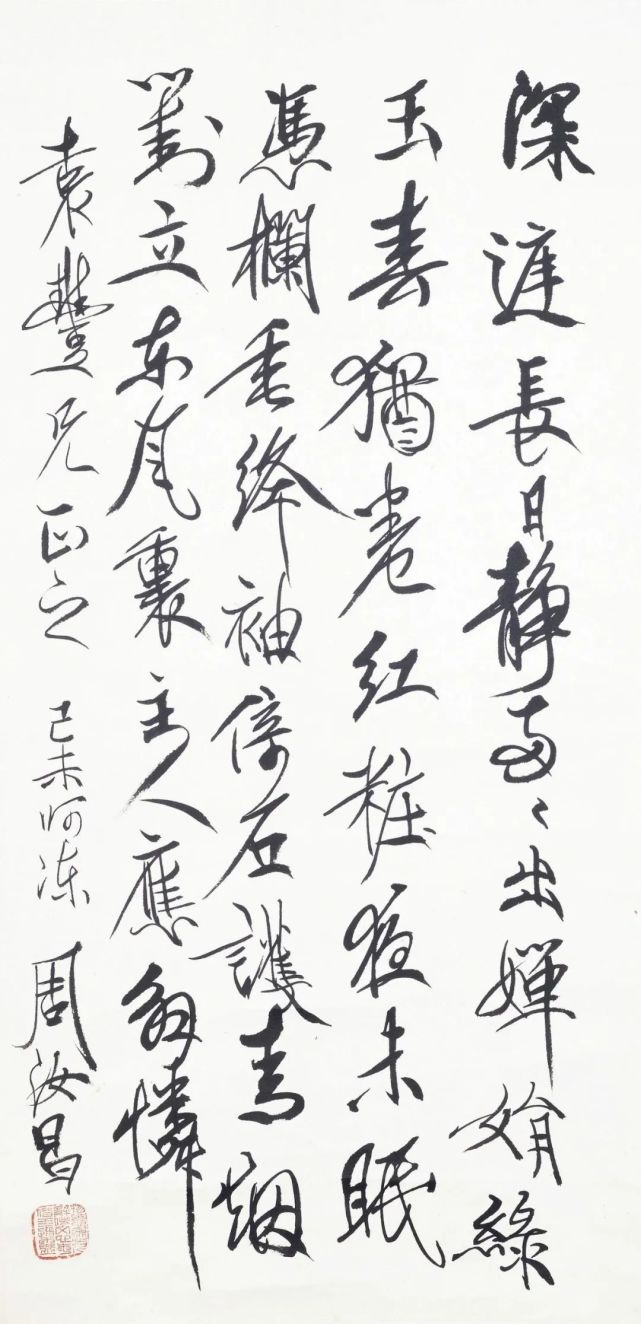 深庭長日靜兩〻出嬋娟綠
玉春猶卷紅粧夜未眠
憑欄垂絳袖倚石護青烟
對立东风裏主人應解憐
袁豐兄正之 己未呵凍 周汝昌